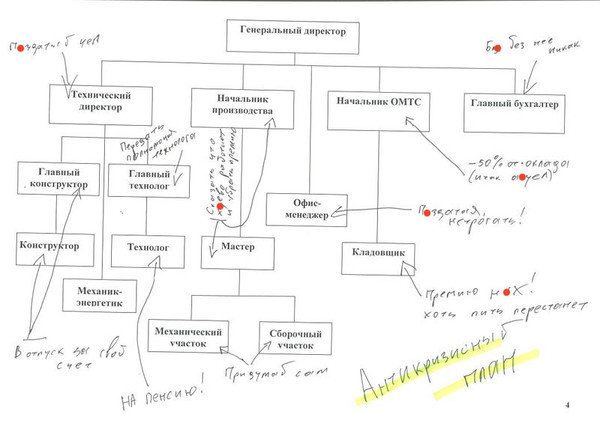 Генеральный директор
П●здатый чел
Бл● без нее
никак
Технический
директор
Начальник
производства
Начальник ОМТС
Главный бухгалтер
Передать
полномочия
технолога
Сказать что
х●ево работает
и убрать премию
-50% от оклада
(итак ох●ел)
Главный
конструктор
Главный
технолог
Офис-
менеджер
П●здатая,
нетрогать!
Конструктор
Технолог
Мастер
Кладовщик
Механик-
энергетик
Премию н●х!
хоть пить перестанет
Механический
участок
Сборочный
участок
В отпуск за свой
счет
НА пенсию!
Придумай сам
Антикризисный
план
4